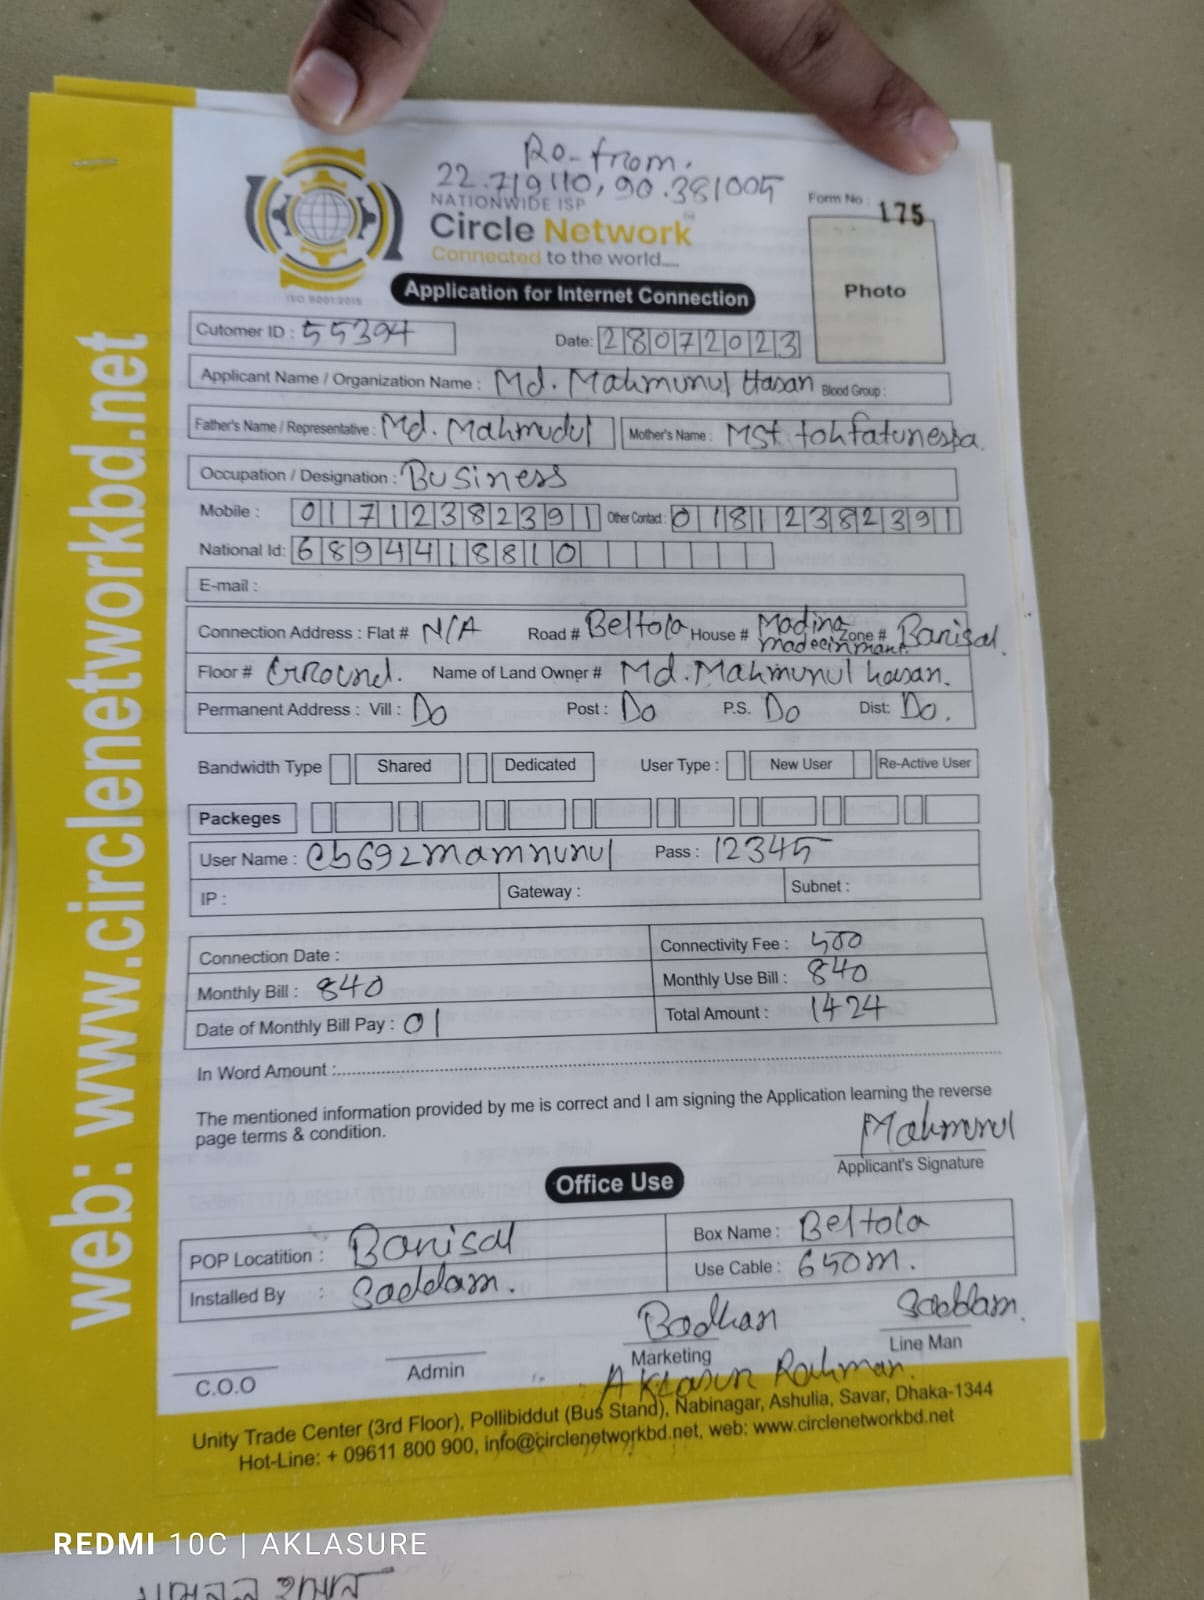 Re-from.
22.719110, 90.381005
NATIONWIDE ISP
Form No : 175
Circle Network
Connected to the world....
ISO 9001:2015
Application for Internet Connection
Photo
Cutomer ID : 55394
Date: 28072023
Applicant Name / Organization Name : Md. Mahmunul Hasan Blood Group :
Father's Name / Representative : Md. Mahmudul Mother's Name : MSt tohfatunessa.
Occupation / Designation : Business
Mobile : 01712382391 Other Contact : 01812382391
National Id: 6894418810
E-mail :
Connection Address : Flat # N/A Road # Beltola House # Madina Zone # Barisal.
Floor # Ground. Name of Land Owner # Md. Mahmunul hasan.
Permanent Address : Vill : Do Post : Do P.S. Do Dist: Do.
Bandwidth Type Shared Dedicated User Type : New User Re-Active User
Packeges
User Name : cb692mamnunul Pass : 12345
IP : Gateway : Subnet :
Connection Date : Connectivity Fee : 500
Monthly Bill : 840 Monthly Use Bill : 840
Date of Monthly Bill Pay : 01 Total Amount : 1424
In Word Amount :
The mentioned information provided by me is correct and I am signing the Application learning the reverse
page terms & condition.
Mahmunul
Applicant's Signature
Office Use
POP Locatition : Barisal Box Name : Beltola
Installed By : Saddam. Use Cable : 650m.
Badhan Saddam.
C.O.O Admin Marketing Line Man
Aklasur Rahman.
Unity Trade Center (3rd Floor), Pollibiddut (Bus Stand), Nabinagar, Ashulia, Savar, Dhaka-1344
Hot-Line: + 09611 800 900, info@circlenetworkbd.net, web: www.circlenetworkbd.net
web: www.circlenetworkbd.net
REDMI 10C | AKLASURE